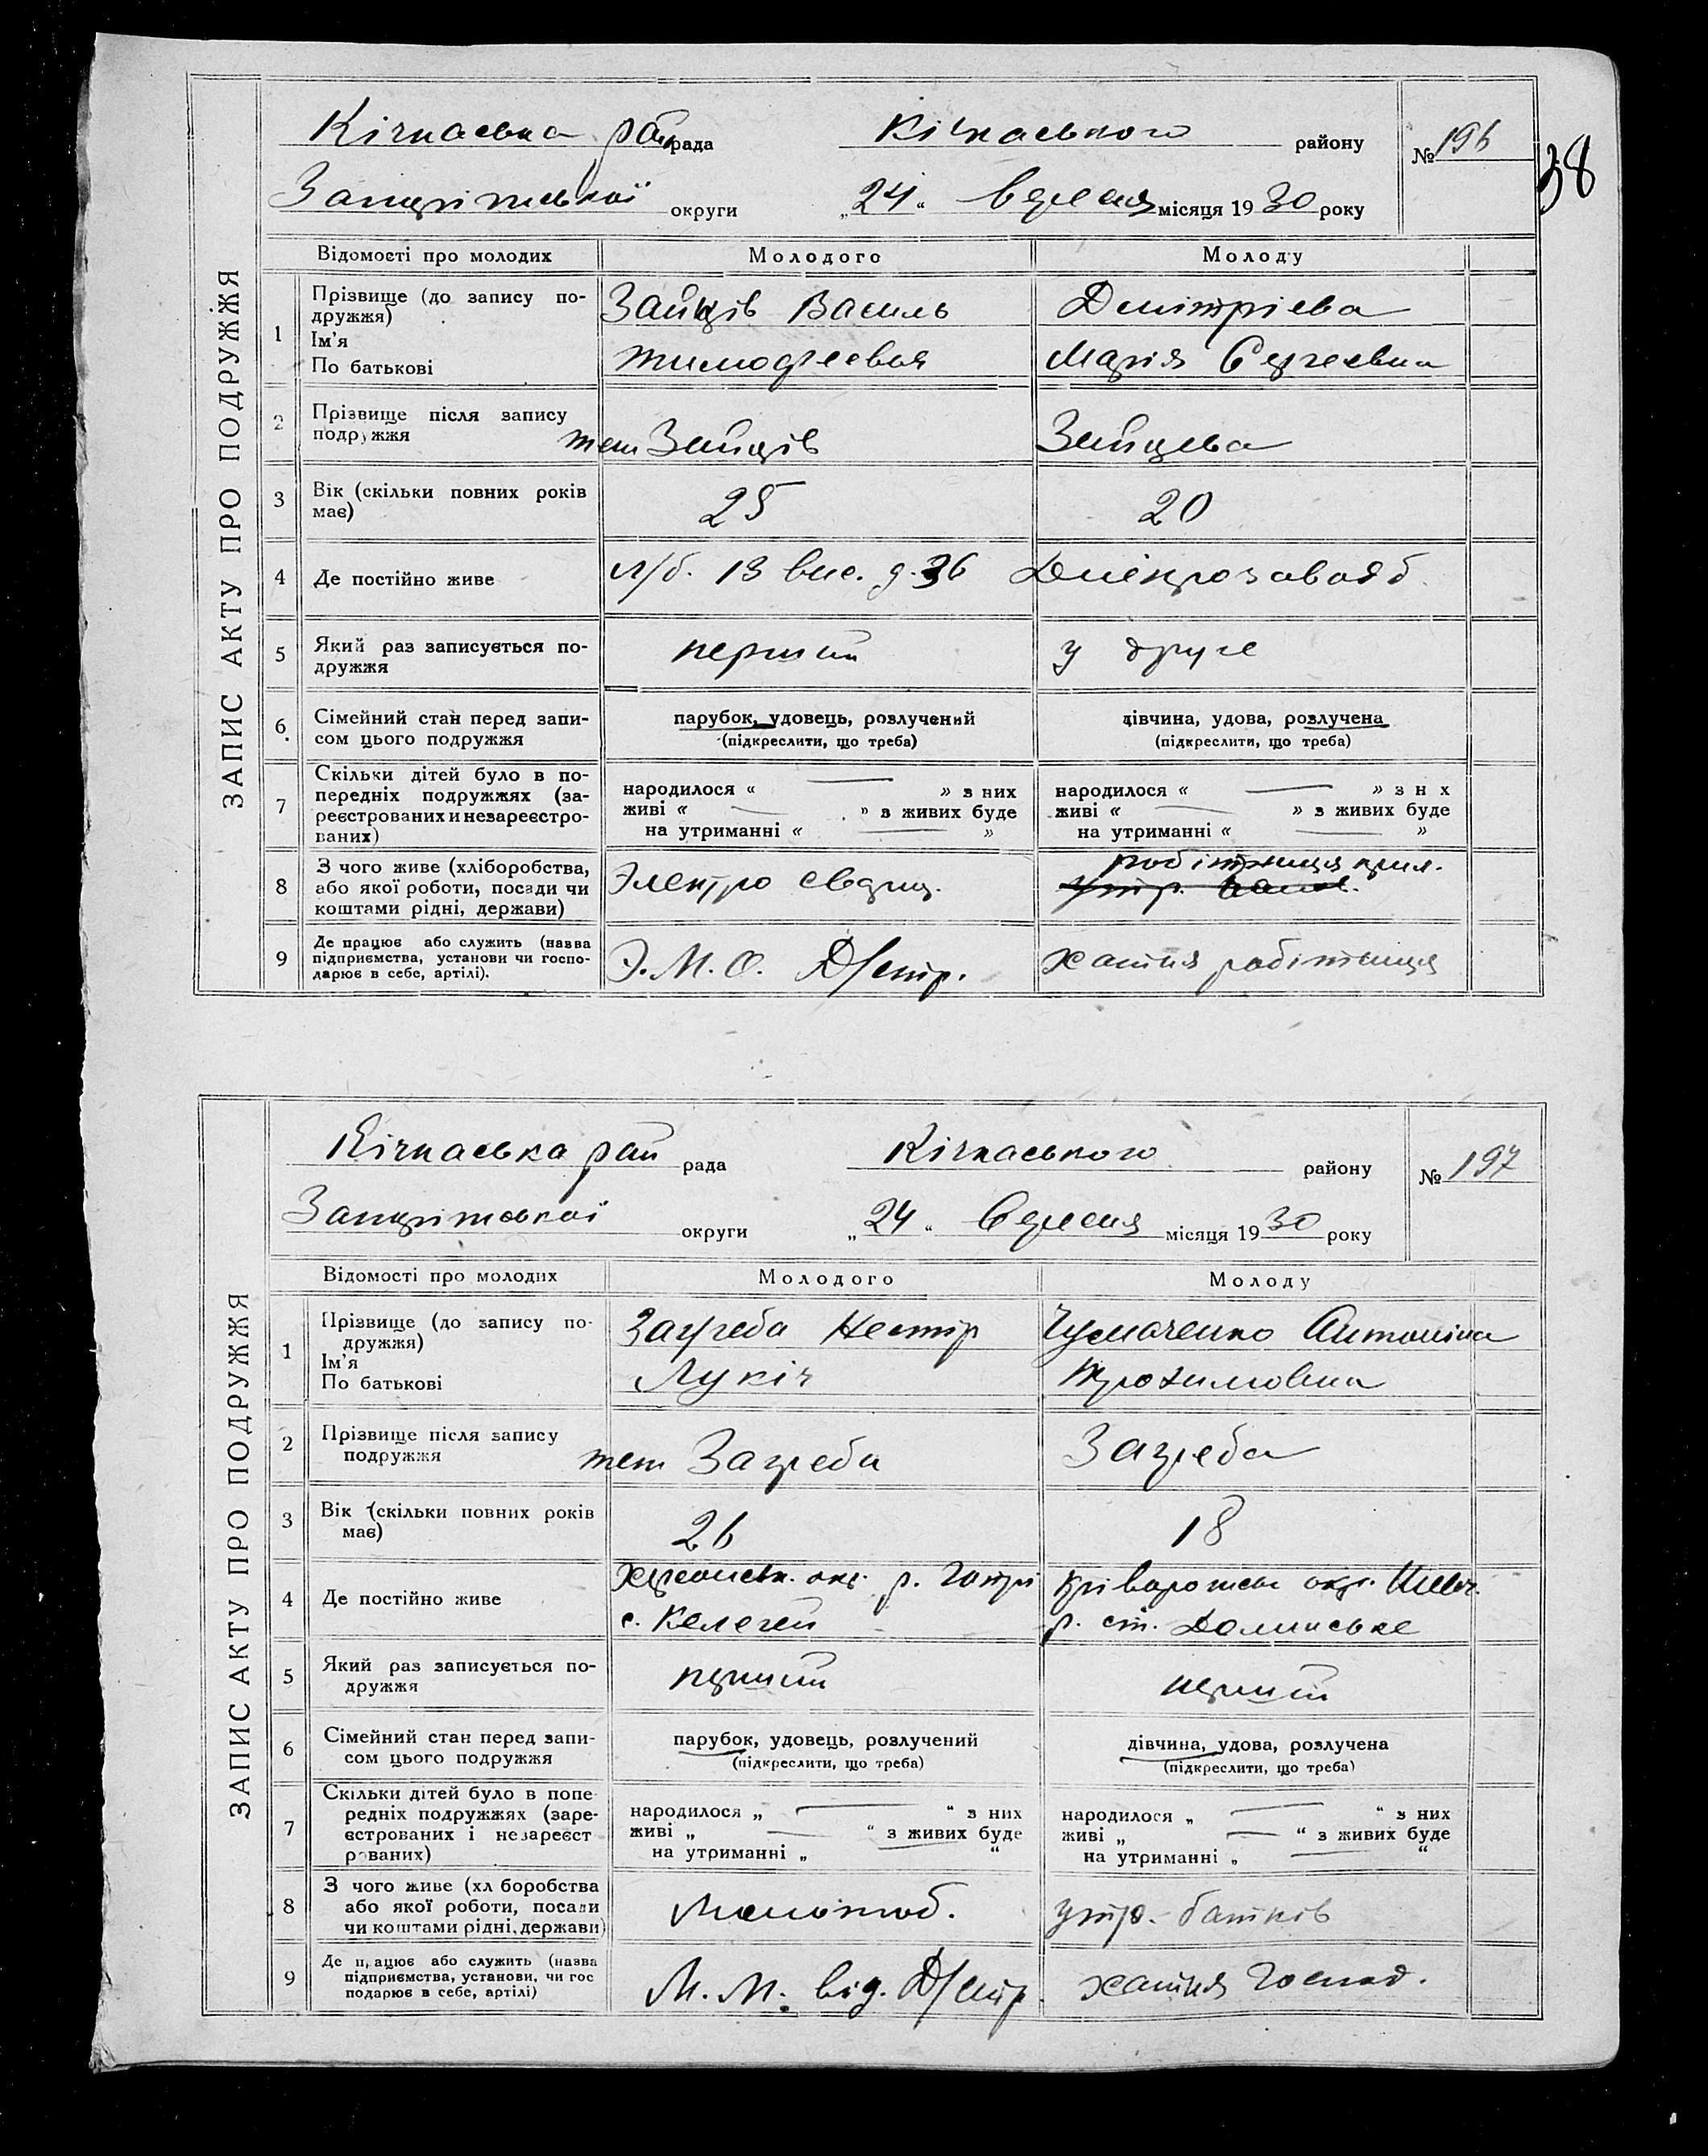 38
ЗАПИС АКТУ ПРО ПОДРУЖЖЯ
Кічкаська рай рада Кічкаського району № 196
Запоріжської округи „24“ Вересня місяця 1930 року
Відомості про молодих Молодого Молоду
1 Прізвище (до запису по-
дружжя)
Ім'я
По батькові
Зайців Василь
Тимофеевич
Дмітріева
Марія Сергеевна
2 Прізвище після запису
подружжя
теж Зайців
Зайцева
3 Вік (скільки повних років
має)
25
20
4 Де постійно живе
л/б. 13 вис. д. 36
5 Який раз записується по-
дружжя
перший
у друге
6. Сімейний стан перед запи-
сом цього подружжя
парубок, удовець, розлучений
(підкреслити, що треба)
дівчина, удова, розлучена
(підкреслити, що треба)
7 Скільки дітей було в по-
передніх подружжях (за-
реєстрованих и незареєстро-
ваних)
народилося « — » з них
живі « — » з живих буде
на утриманні « — »
народилося « — » з н х
живі « — » з живих буде
на утриманні « — »
8 З чого живе (хліборобства,
або якої роботи, посади чи
коштами рідні, держави)
Электро сварщ.
робітниця
утр.
9 Де працює або служить (назва
підприємства, установи чи госпо-
дарює в себе, артілі).
Э. М. О. Д/стр.
хатня робітниця
ЗАПИС АКТУ ПРО ПОДРУЖЖЯ
Кічкаська рай рада Кічкаського району № 197
Запоріжської округи „24“ Вересня місяця 1930 року
Відомості про молодих Молодого Молоду
1 Прізвище (до запису по-
дружжя)
Ім'я
По батькові
Загреба Нестір
Лукіч
Чумаченко Антоніна
Трохимовна
2 Прізвище після запису
подружжя
теж Загреба
Загреба
3 Вік (скільки повних років
має)
26
18
4 Де постійно живе
Херсонськ. окр. р.
с. Келегей
Кріворожськ окр.
р. ст. Долинське
5 Який раз записується по-
дружжя
перший
перший
6 Сімейний стан перед запи-
сом цього подружжя
парубок, удовець, розлучений
(підкреслити, що треба)
дівчина, удова, розлучена
(підкреслити, що треба)
7 Скільки дітей було в попе-
редніх подружжях (заре-
єстрованих і незареєст
рованих)
народилося „ — “ з них
живі „ — “ з живих буде
на утриманні „ — “
народилося „ — “ з них
живі „ — “ з живих буде
на утриманні „ — “
8 З чого живе (хл боробства
або якої роботи, посади
чи коштами рідні, держави)
утр. батьків
9 Де працює або служить (назва
підприємства, установи, чи гос
подарює в себе, артілі)
М. М. від. Д/стр.
хатня господ.